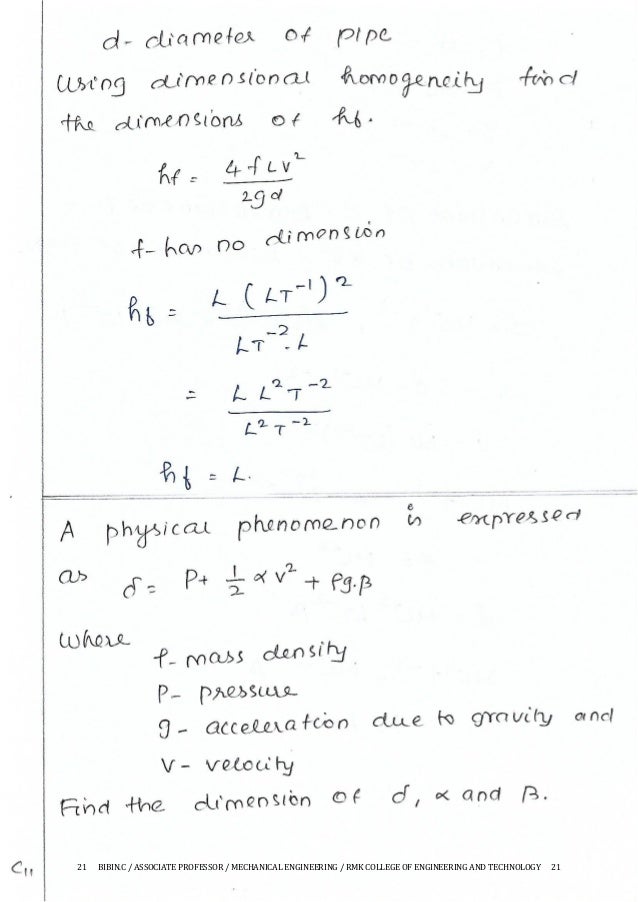 d- diameter of pipe
Using dimensional homogeneity find
the dimensions of hf.
hf = 4fLV²/2gd
f- has no dimension
hf = L (LT⁻¹)²/LT⁻².L
= L L²T⁻²/L²T⁻²
hf = L.
A physical phenomenon is expressed
as δ = P + 1/2 αV² + ρg.β
where
ρ- mass density.
P- pressure
g- acceleration due to gravity and
V- velocity
Find the dimension of δ, α and β.
C11
21 BIBIN.C / ASSOCIATE PROFESSOR / MECHANICAL ENGINEERING / RMK COLLEGE OF ENGINEERING AND TECHNOLOGY 21